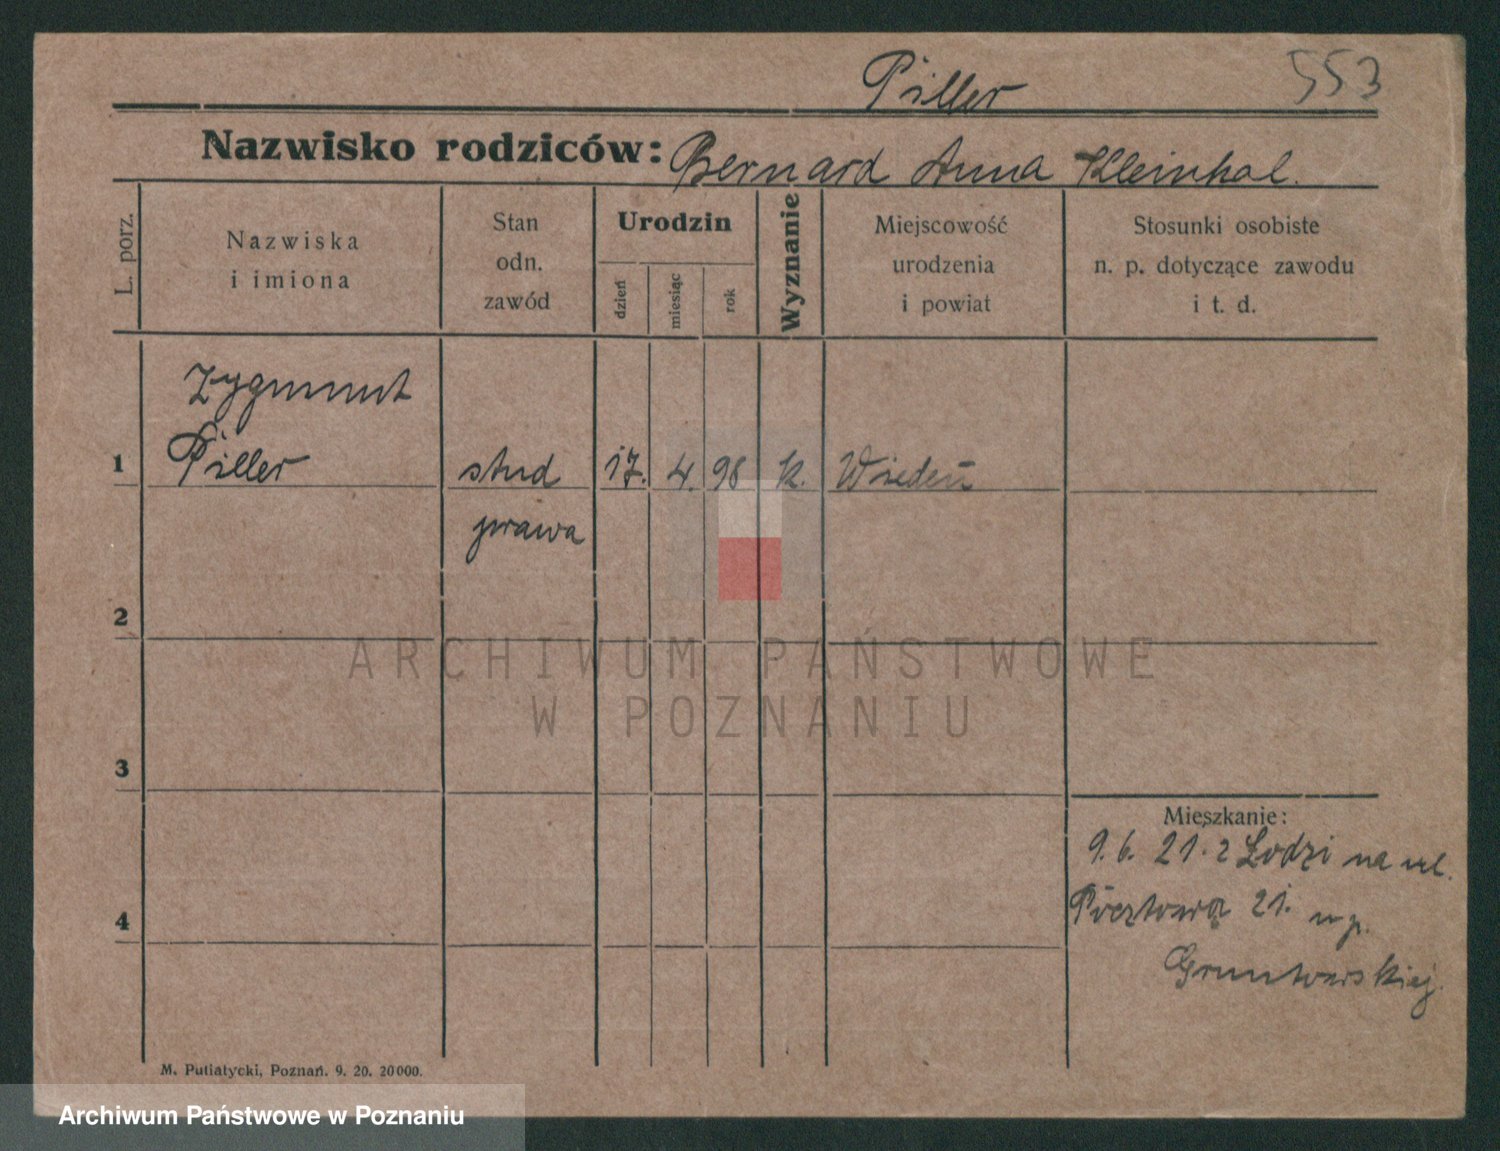 Piller 553
Nazwisko rodziców: Bernard Anna Kleinhol.
L. porz.
Nazwiska
i imiona
Stan
odn.
zawód
Urodzin
dzień
miesiąc
rok
Wyznanie
Miejscowość
urodzenia
i powiat
Stosunki osobiste
n. p. dotyczące zawodu
i t. d.
Zygmunt
1 Piller stud 17. 4. 98 k. Wiedeń
prawa
2
3
4
Mieszkanie:
9. 6. 21. z Łodzi na ul.
Pocztową 21. u p.
Gruntowskiej.
M. Putiatycki, Poznań. 9. 20. 20000.
ARCHIWUM PAŃSTWOWE
W POZNANIU
Archiwum Państwowe w Poznaniu